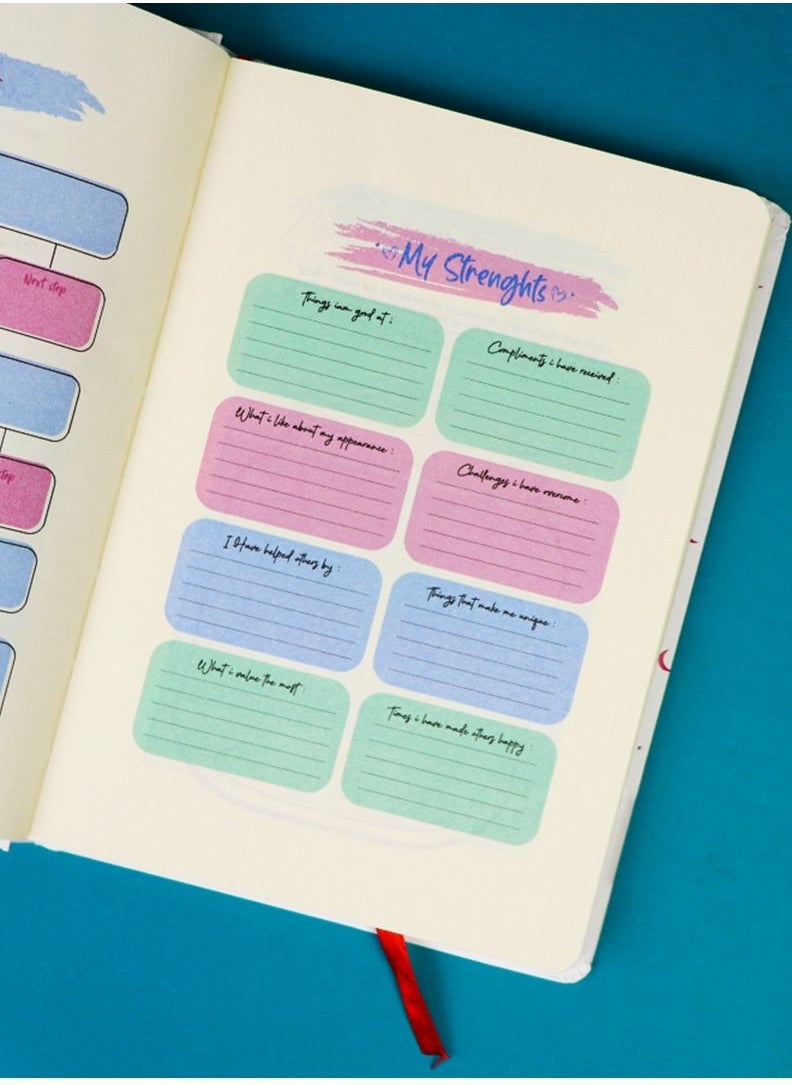 Next step
step
My Strenghts
Things iam good at :
Compliments i have received :
What i like about my appearance :
Challenges i have overcome :
I Have helped others by :
Things that make me unique :
What i value the most :
Times i have made others happy :